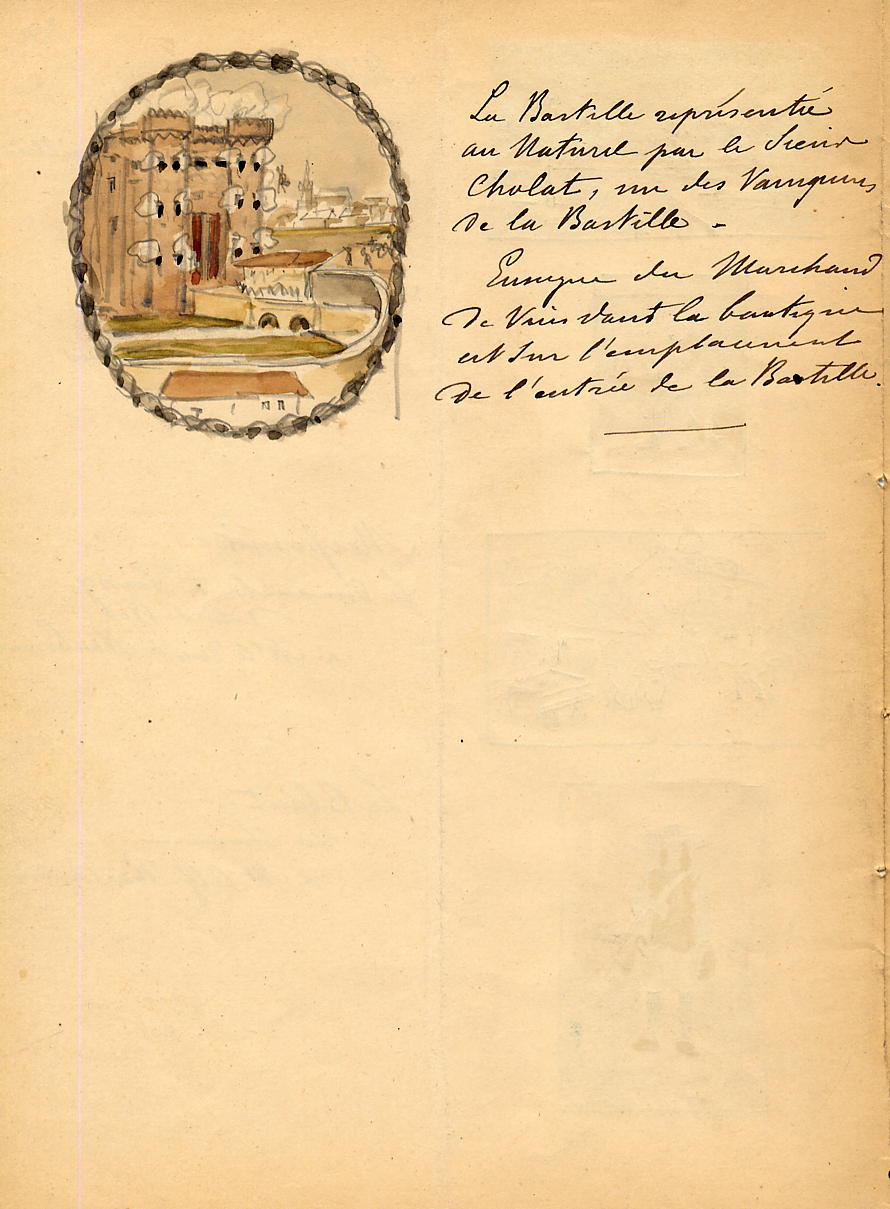 La Bastille représentée
au Naturel par le Sieur
Cholat, un des Vainqueurs
de la Bastille -
Enseigne du Marchand
de Vins dont la boutique
est sur l'emplacement
de l'entrée de la Bastille.